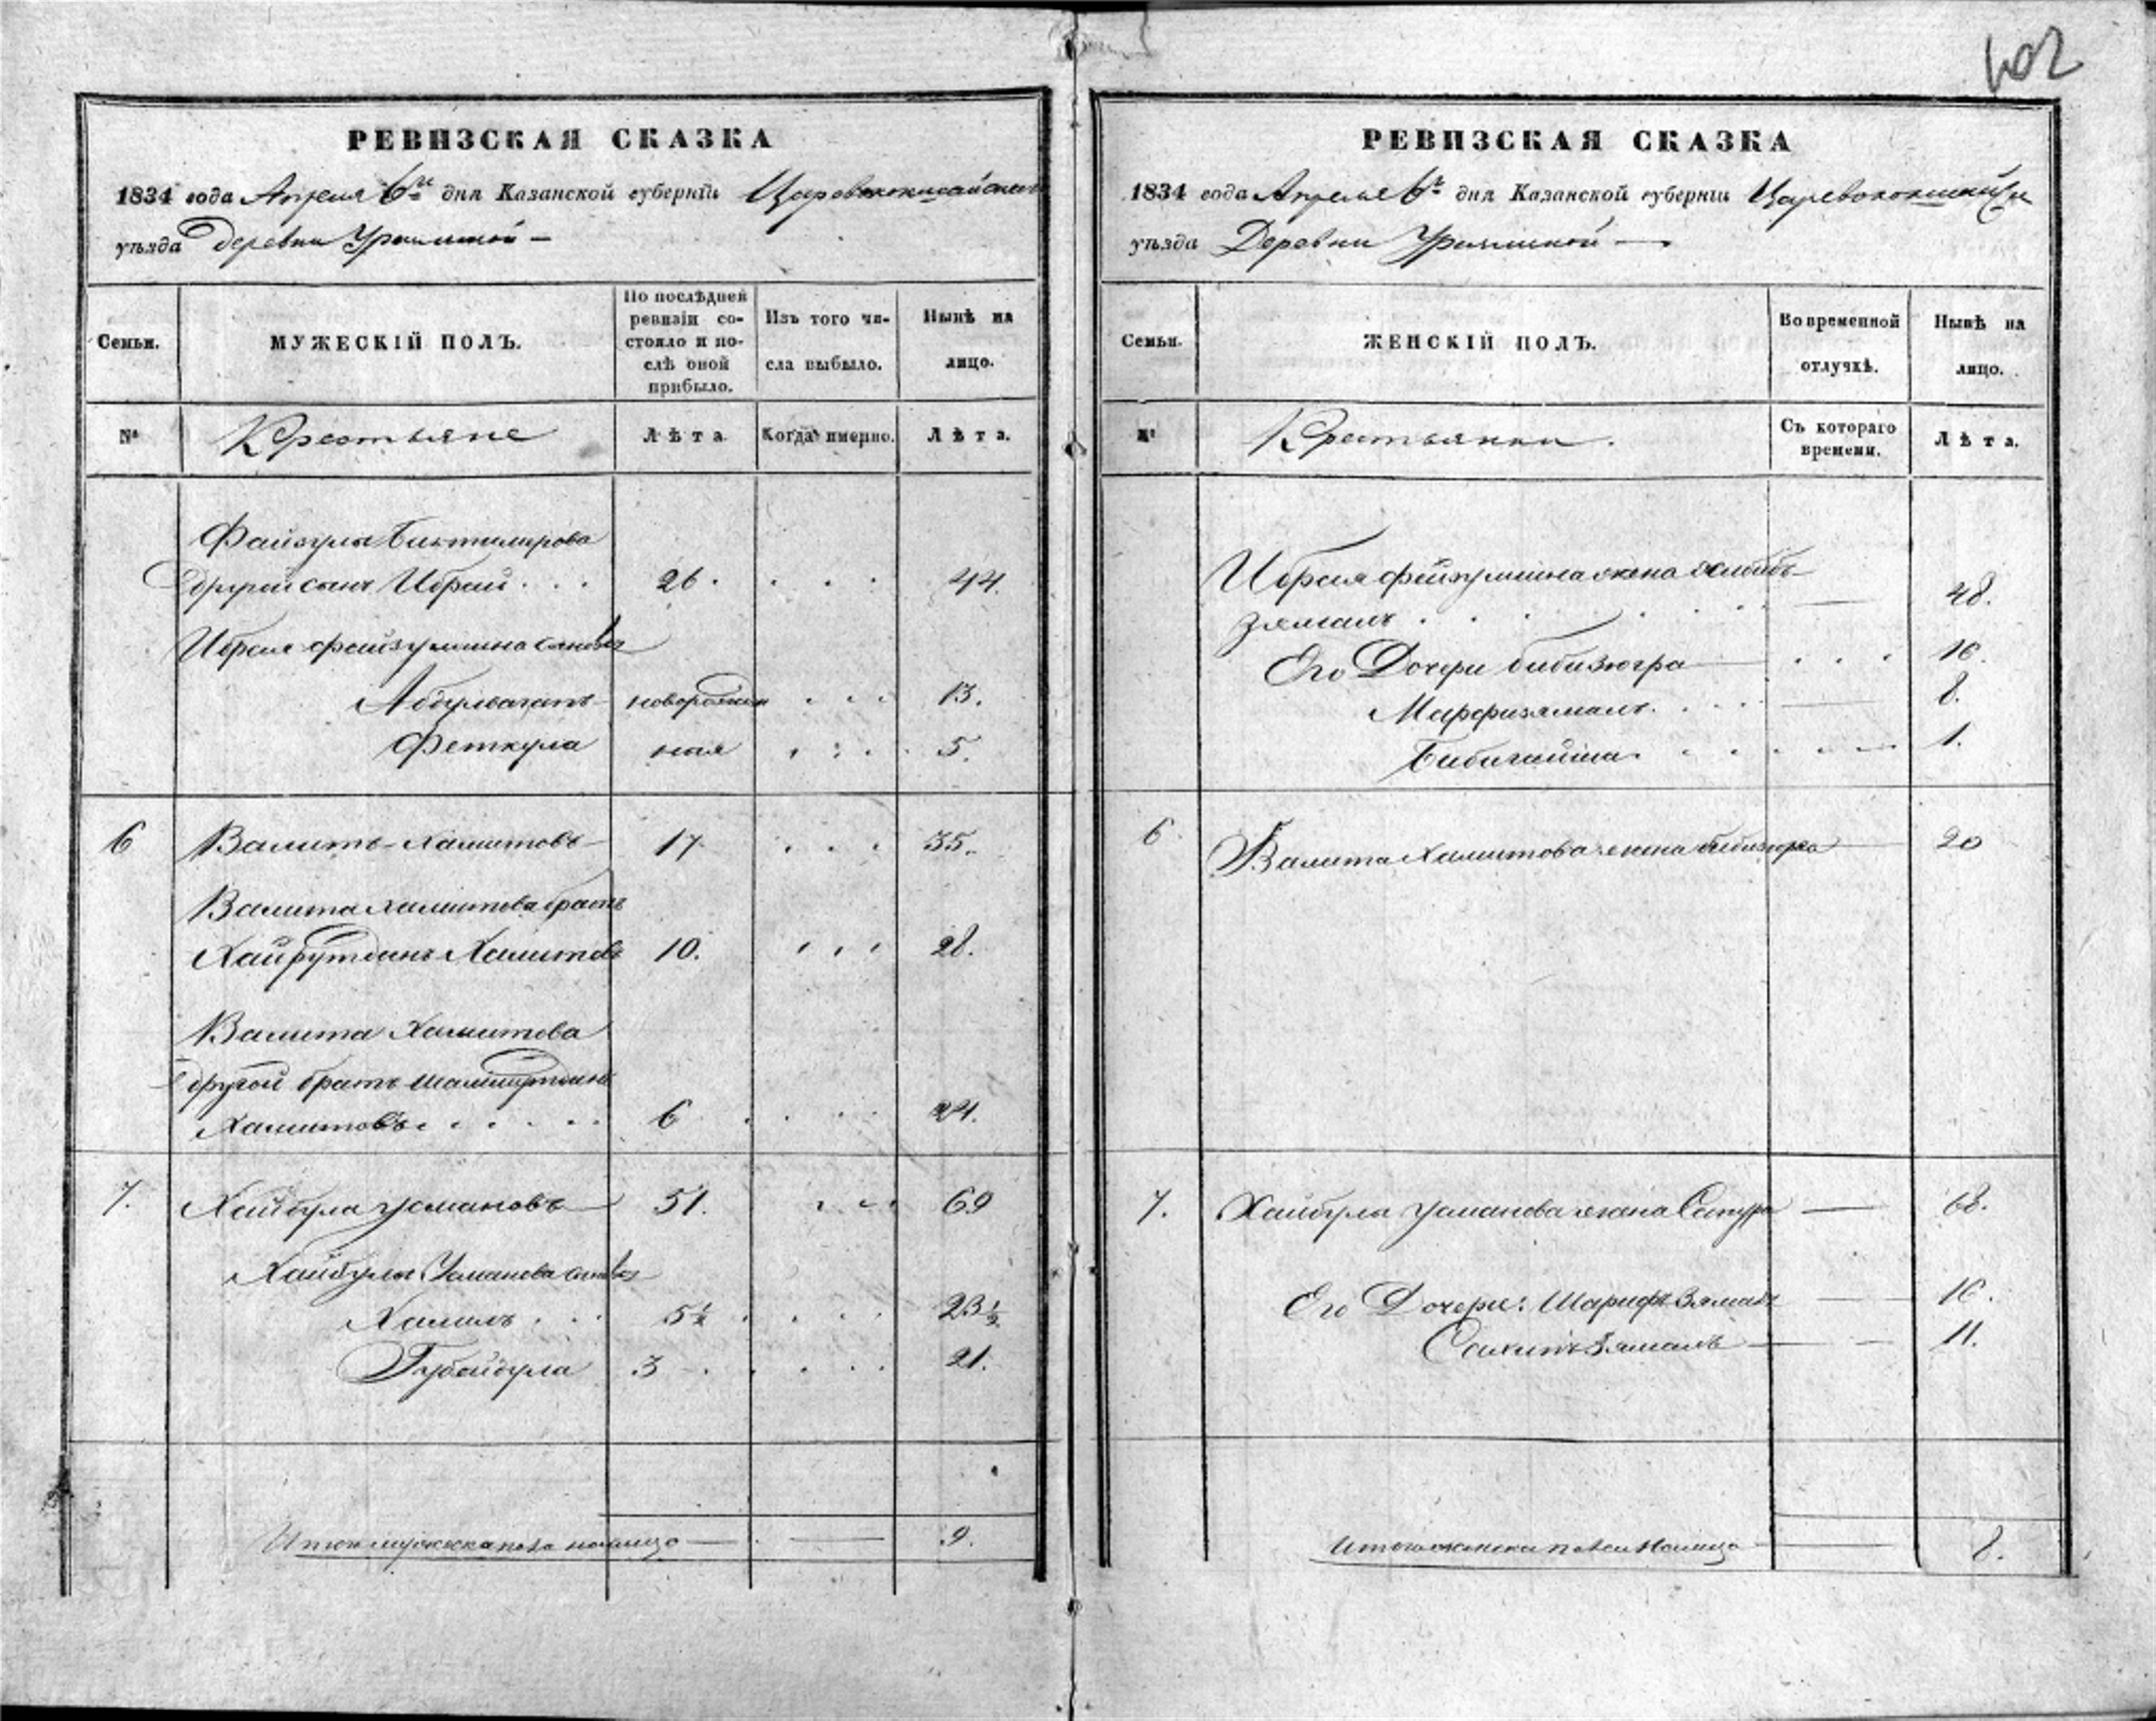 102
РЕВИЗСКАЯ СКАЗКА
1834 года Апреля 6го дня Казанской губерніи Царевококшайскаго
уѣзда деревни
Семьи.
МУЖЕСКІЙ ПОЛЪ.
По послѣдней ревизіи состояло и послѣ оной прибыло.
Изъ того числа выбыло.
Нынѣ на лицо.
№
Крестьяне
Лѣта.
Когда именно.
Лѣта.
Файзулы Биктимирова
другой сынъ Ибрай . . . 26. . . . 44.
Ибрая Файзуллина сыновья
новорожден . . . 13.
Феткула ныя . . . . 5.
6 Валитъ Хамитовъ 17 . . . 35.
Валита Хамитова братъ
Хайрутдинъ Хамитовъ 10. . . . 28.
Валита Хамитова
другой братъ
Хамитовъ . . . . . 6 . . . . 24.
7. Хайбула Усмановъ 51. . . . 69
Хайбулы Усманова сыновья
Халилъ . . . 5½ . . . . 23½
Губайдула 3 . . . . . 21.
Итого мужеска пола на лицо — — 9.
РЕВИЗСКАЯ СКАЗКА
1834 года Апреля 6го дня Казанской губерніи
уѣзда Деревни
Семьи.
ЖЕНСКІЙ ПОЛЪ.
Во временной отлучкѣ.
Нынѣ на лицо.
№
Крестьянки.
Съ котораго времени.
Лѣта.
Ибрая Файзуллина жена
зямалъ . . . . . — 48.
Его Дочери бибизюгра . . . 16.
. . . — 8.
. . . . . . 1.
6 Валита Хамитова жена бибизюгра — 20
7. Хайбулы Усманова жена — 68.
Его Дочери: Шарифъзямалъ — 16.
зямалъ — 11.
Итого женска пола на лицо — 8.